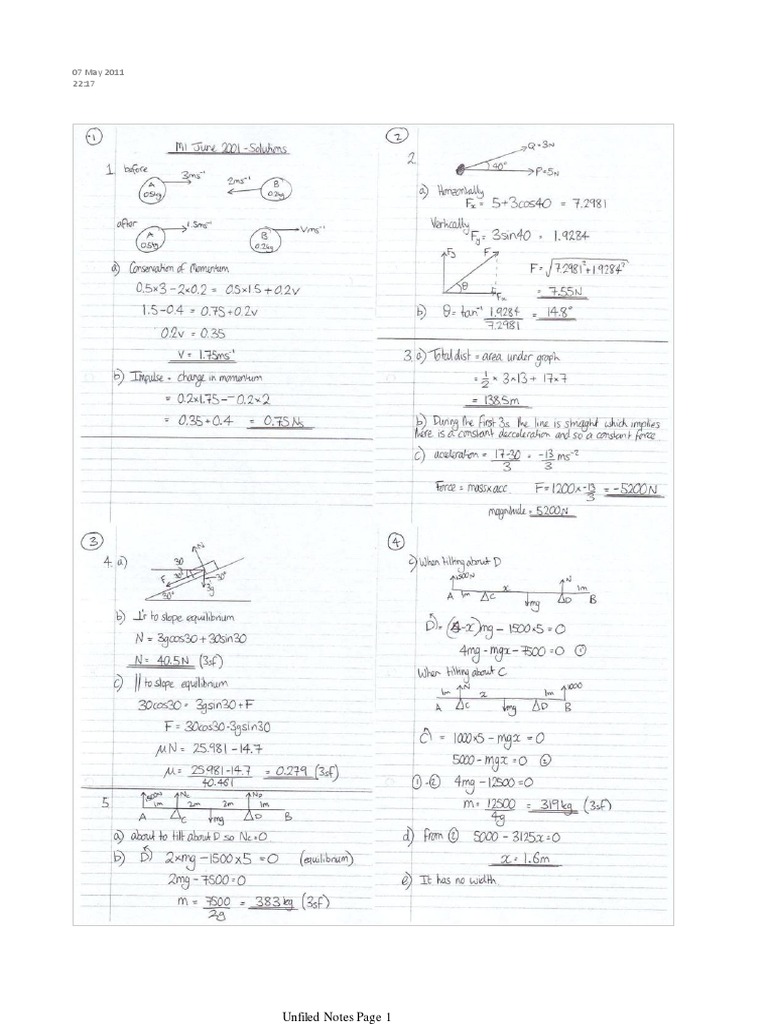 07 May 2011
22:17
1
M1 June 2001 - Solutions
1.
before
3ms⁻¹
2ms⁻¹
A
0.5kg
B
0.2kg
after
1.5ms⁻¹
Vms⁻¹
A
0.5kg
B
0.2kg
a) Conservation of Momentum
0.5×3 - 2×0.2 = 0.5×1.5 + 0.2v
1.5 - 0.4 = 0.75 + 0.2v
0.2v = 0.35
V = 1.75ms⁻¹
b) Impulse = change in momentum
= 0.2×1.75 - -0.2×2
= 0.35 + 0.4 = 0.75 Ns
2
2.
Q=3N
40°
P=5N
a) Horizontally
Fx = 5+3cos40 = 7.2981
Vertically
Fy = 3sin40 = 1.9284
Fy
F
θ
Fx
F = √7.2981² + 1.9284²
= 7.55N
b) θ = tan⁻¹ 1.9284/7.2981 = 14.8°
3. a) Total dist = area under graph
= 1/2 × 3×13 + 17×7
= 138.5m
b) During the first 3s the line is straight which implies
there is a constant decceleration and so a constant force
c) aceleration = 17-30/3 = -13/3 ms⁻²
Force = mass×acc F = 1200×-13/3 = -5200N
magnitude = 5200N
3
4. a)
N
30
F
30°
30°
3g
30°
b) ⊥'r to slope equilibrium
N = 3gcos30 + 30sin30
N = 40.5N (3sf)
c) || to slope equilibrium
30cos30 = 3gsin30 + F
F = 30cos30 - 3gsin30
μN = 25.981 - 14.7
μ = 25.981 - 14.7/40.461 = 0.279 (3sf)
5.
1500N
Nc
ND
1m
2m
2m
1m
A
C
mg
D
B
a) about to tilt about D so Nc=0
b) D 2×mg - 1500×5 = 0 (equilibrium)
2mg - 7500 = 0
m = 7500/2g = 383kg (3sf)
4
c) When tilting about D
1500N
x
N
1m
A
1m
C
mg
D
B
D = (4-x)mg - 1500×5 = 0
4mg - mgx - 7500 = 0 ①
When tilting about C
1m
N
x
1m
1000
A
C
mg
D
B
C = 1000×5 - mgx = 0
5000 - mgx = 0 ②
① - ② 4mg - 12500 = 0
m = 12500/4g = 319kg (3sf)
d) from ② 5000 - 3125x = 0
x = 1.6m
e) It has no width
Unfiled Notes Page 1